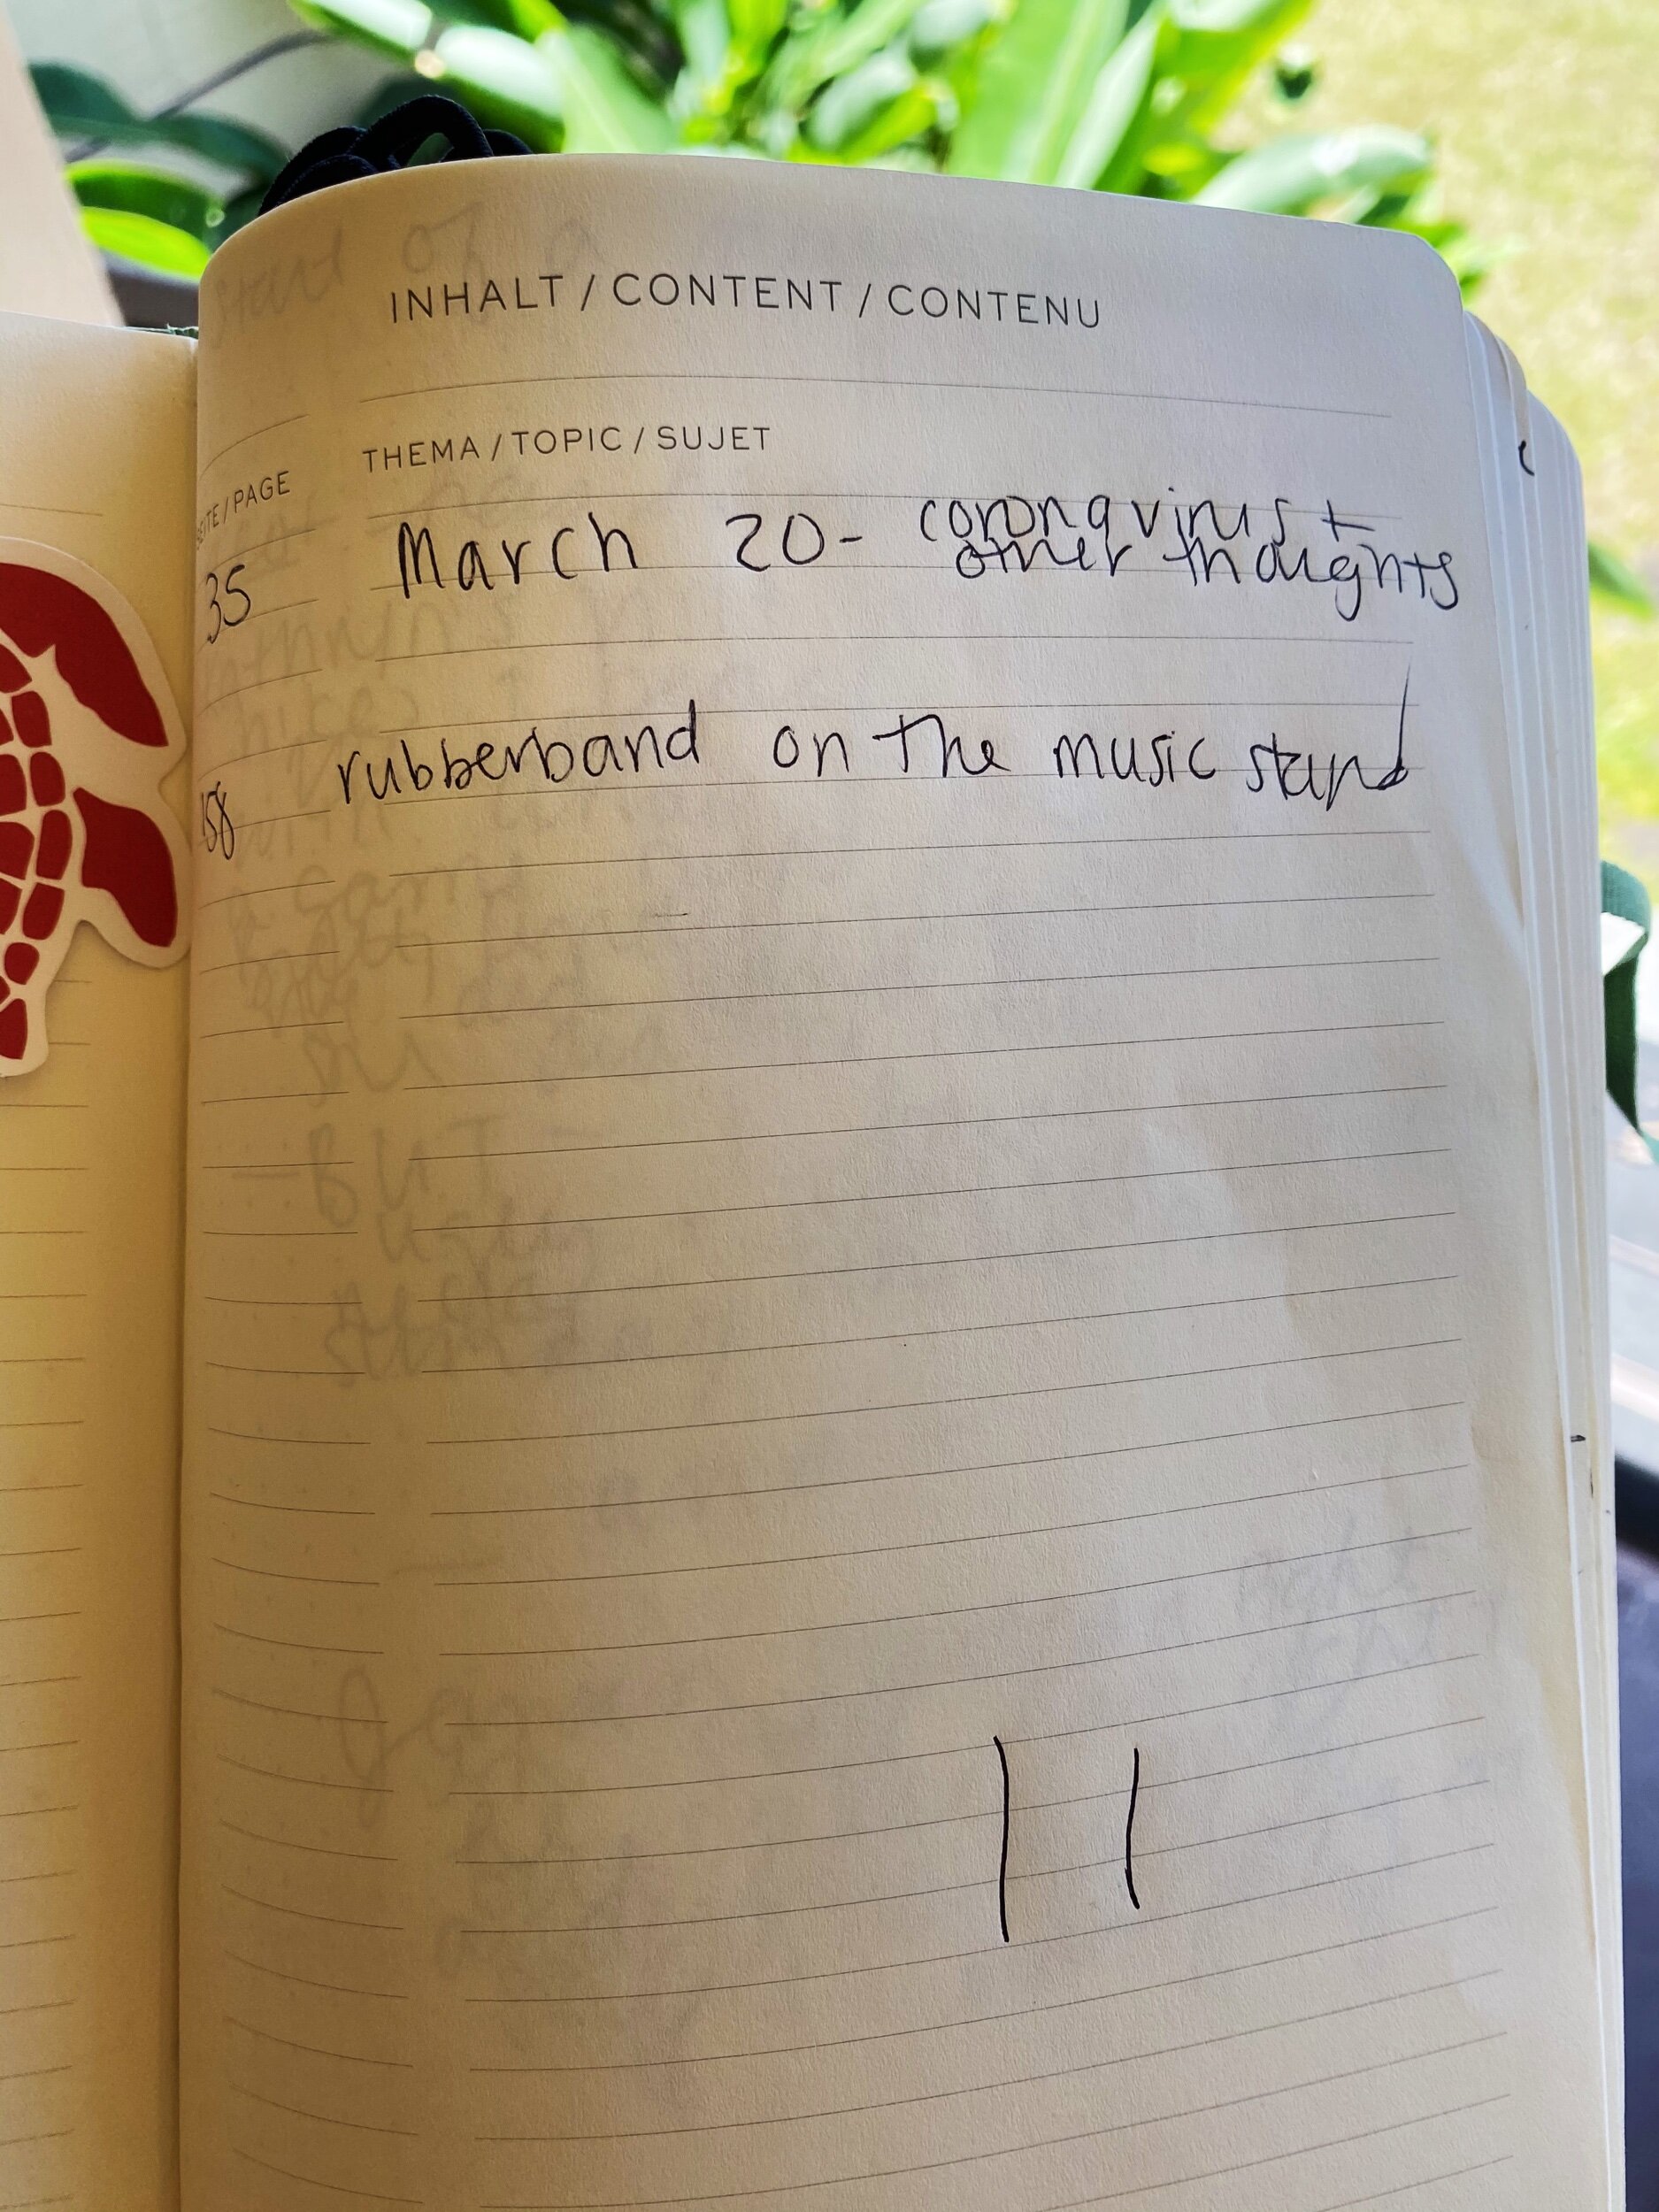 INHALT / CONTENT / CONTENU
SEITE / PAGE THEMA / TOPIC / SUJET
35 March 20- coronavirus +
other thoughts
158 rubberband on the music stand